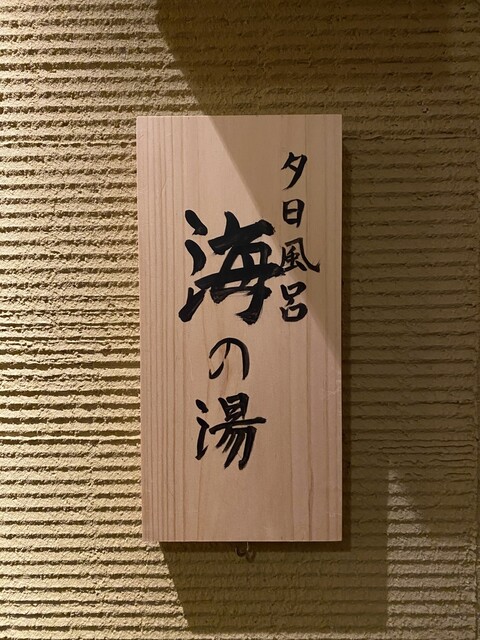 夕日風呂
海の湯